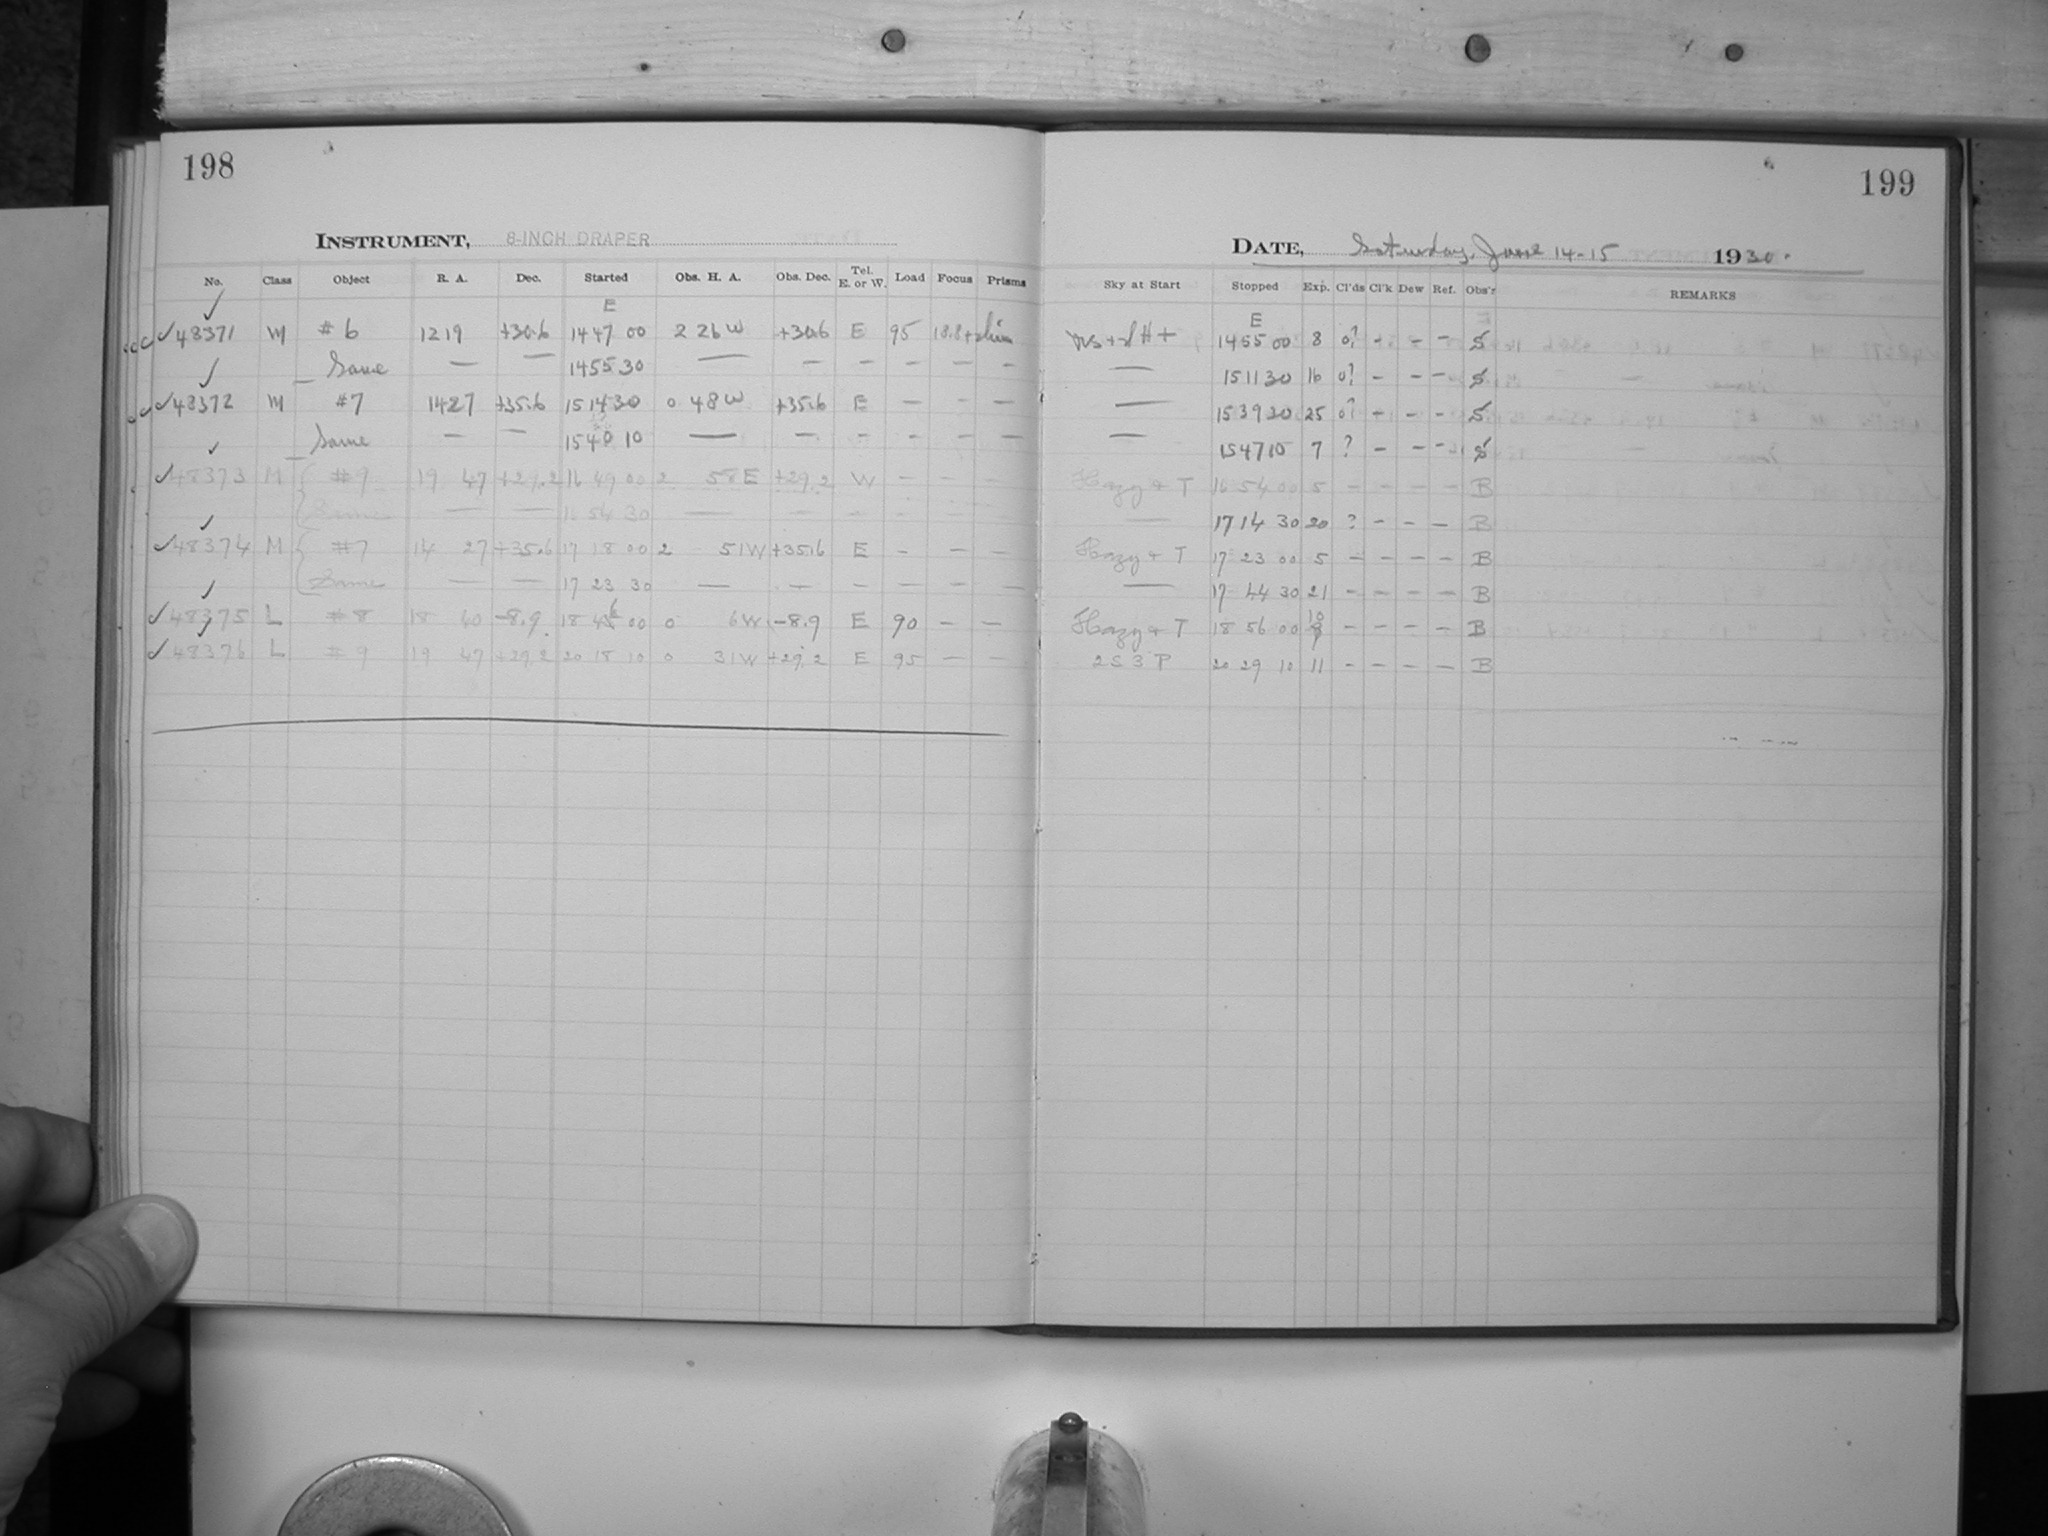 198
INSTRUMENT, 8-INCH DRAPER
No. Class Object R. A. Dec. Started Obs. H. A. Obs. Dec. Tel. E. or W. Load Focus Prisms
E
48371 M #6 12 19 +30.6 14 47 00 2 26 W +30.6 E 95 18.8
Same — — 14 55 30 — — — — — —
48372 M #7 14 27 +35.6 15 14 30 0 48 W +35.6 E — — —
Same — — 15 40 10 — — — — — —
48373 M #9 19 47 +29.2 16 49 00 2 58 E +29.2 W — — —
Same — — 16 54 30 — — — — — —
48374 M #7 14 27 +35.6 17 18 00 2 51 W +35.6 E — — —
Same — — 17 23 30 — — — — — —
48375 L #8 18 40 -8.9 18 46 00 0 6 W -8.9 E 90 — —
48376 L #9 19 47 +29.2 20 18 10 0 31 W +29.2 E 95 — —
199
DATE, Saturday, June 14-15 1930.
Sky at Start Stopped Exp. Cl'ds Cl'k Dew Ref. Obs'r REMARKS
E
14 55 00 8 0? - - - S
— 15 11 30 16 0? - - - S
— 15 39 30 25 0? - - - S
— 15 47 10 7 ? - - - S
Hazy + T 16 54 00 5 - - - - B
— 17 14 30 20 ? - - - B
Hazy + T 17 23 00 5 - - - - B
— 17 44 30 21 - - - - B
Hazy + T 18 56 00 10 - - - - B
2 S 3 P 20 29 10 11 - - - - B